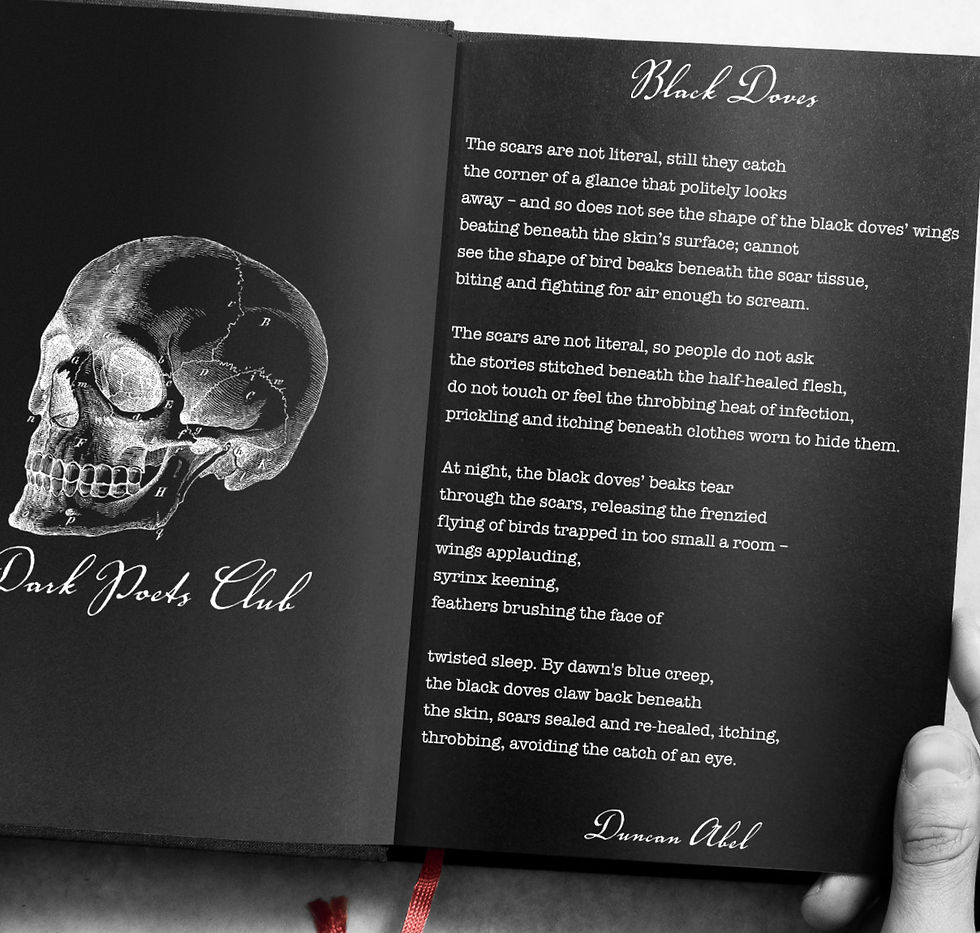 Dark Poets Club
Black Doves
The scars are not literal, still they catch
the corner of a glance that politely looks
away – and so does not see the shape of the black doves’ wings
beating beneath the skin’s surface; cannot
see the shape of bird beaks beneath the scar tissue,
biting and fighting for air enough to scream.
The scars are not literal, so people do not ask
the stories stitched beneath the half-healed flesh,
do not touch or feel the throbbing heat of infection,
prickling and itching beneath clothes worn to hide them.
At night, the black doves’ beaks tear
through the scars, releasing the frenzied
flying of birds trapped in too small a room –
wings applauding,
syrinx keening,
feathers brushing the face of
twisted sleep. By dawn's blue creep,
the black doves claw back beneath
the skin, scars sealed and re-healed, itching,
throbbing, avoiding the catch of an eye.
Duncan Abel